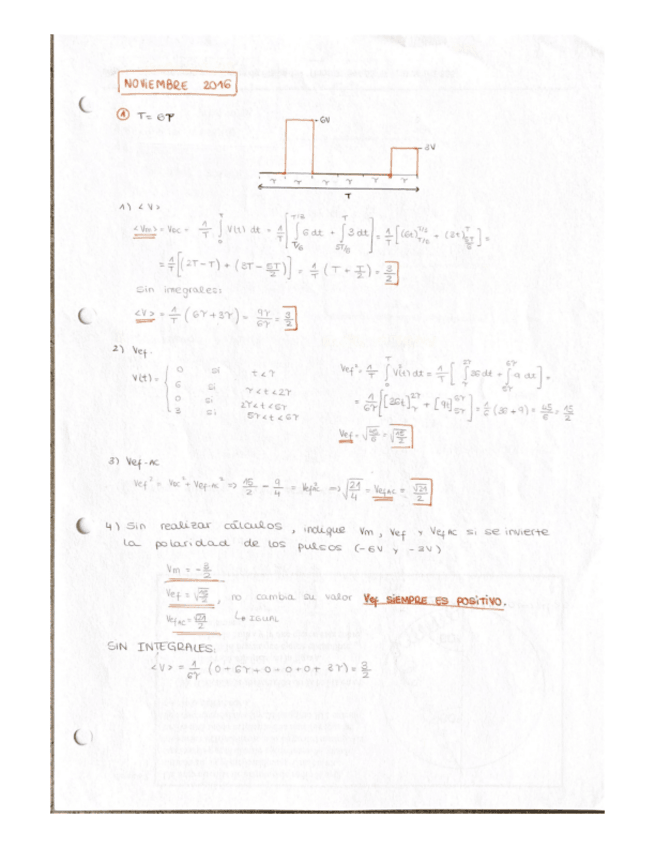 NOVIEMBRE 2016
① T= 6τ
6V
3V
τ τ τ τ τ τ
T
1) <V>
<Vm> = VDC = 1/T ∫₀ᵀ V(t) dt = 1/T [∫ 6 dt + ∫ 3 dt] = 1/T [(6t) + (3t)] =
= 1/T [(2T-T) + (3T - 5T/2)] = 1/T (T + T/2) = 3/2
Sin integrales:
<V> = 1/T (6τ+3τ) = 9τ/6τ = 3/2
2) Vef.
V(t) = { 0 si t<τ
6 si τ<t<2τ
0 si 2τ<t<5τ
3 si 5τ<t<6τ
Vef² = 1/T ∫₀ᵀ V²(t) dt = 1/T [∫ 36 dt + ∫ 9 dt] =
= 1/6τ [[36t] + [9t]] = 1/6 (36+9) = 45/6 = 15/2
Vef = √45/6 = √15/2
3) Vef-AC
Vef² = VDC² + Vef-AC² => 15/2 - 9/4 = VefAC² => √21/4 = VefAC = √21/2
4) Sin realizar cálculos, indique Vm, Vef y VefAC si se invierte
la polaridad de los pulsos (-6V y -3V)
Vm = -3/2
Vef = √15/2, no cambia su valor Vef SIEMPRE ES POSITIVO.
VefAC = √21/2 ↳ IGUAL
SIN INTEGRALES:
<V> = 1/6τ (0+6τ+0+0+0+3τ) = 3/2